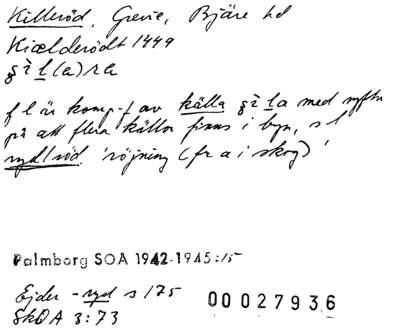 Killeröd, Grevie, Bjäre hd
Kiælderödt 1449
l(a)ra
f l är komp-f av källa med syftn
på att flera källor finns i byn, s l
ryd/röd 'röjning (fr a i skog)'
Palmborg SOA 1942-1945:15
Ejder -ryd s 175
SkOA 3:73
00027936